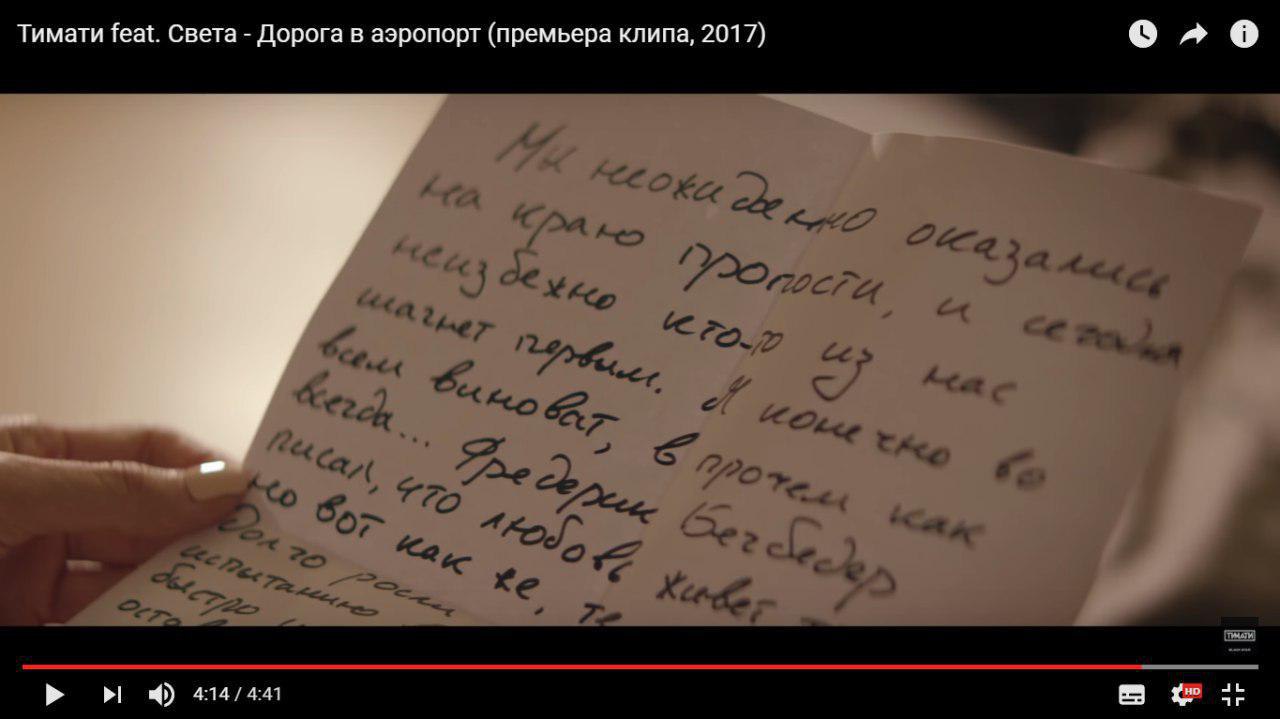 Тимати feat. Света - Дорога в аэропорт (премьера клипа, 2017)
Мы неожиданно оказались
на краю пропости, и сегодня
неизбежно кто-то из нас
шагнет первым. Я конечно во
всем виноват, в прочем как
всегда... Фредерик Бегбедер
писал, что любовь живет
но вот как же, те
Долго
испытанию
быстро
ТИМАТИ
4:14 / 4:41
HD